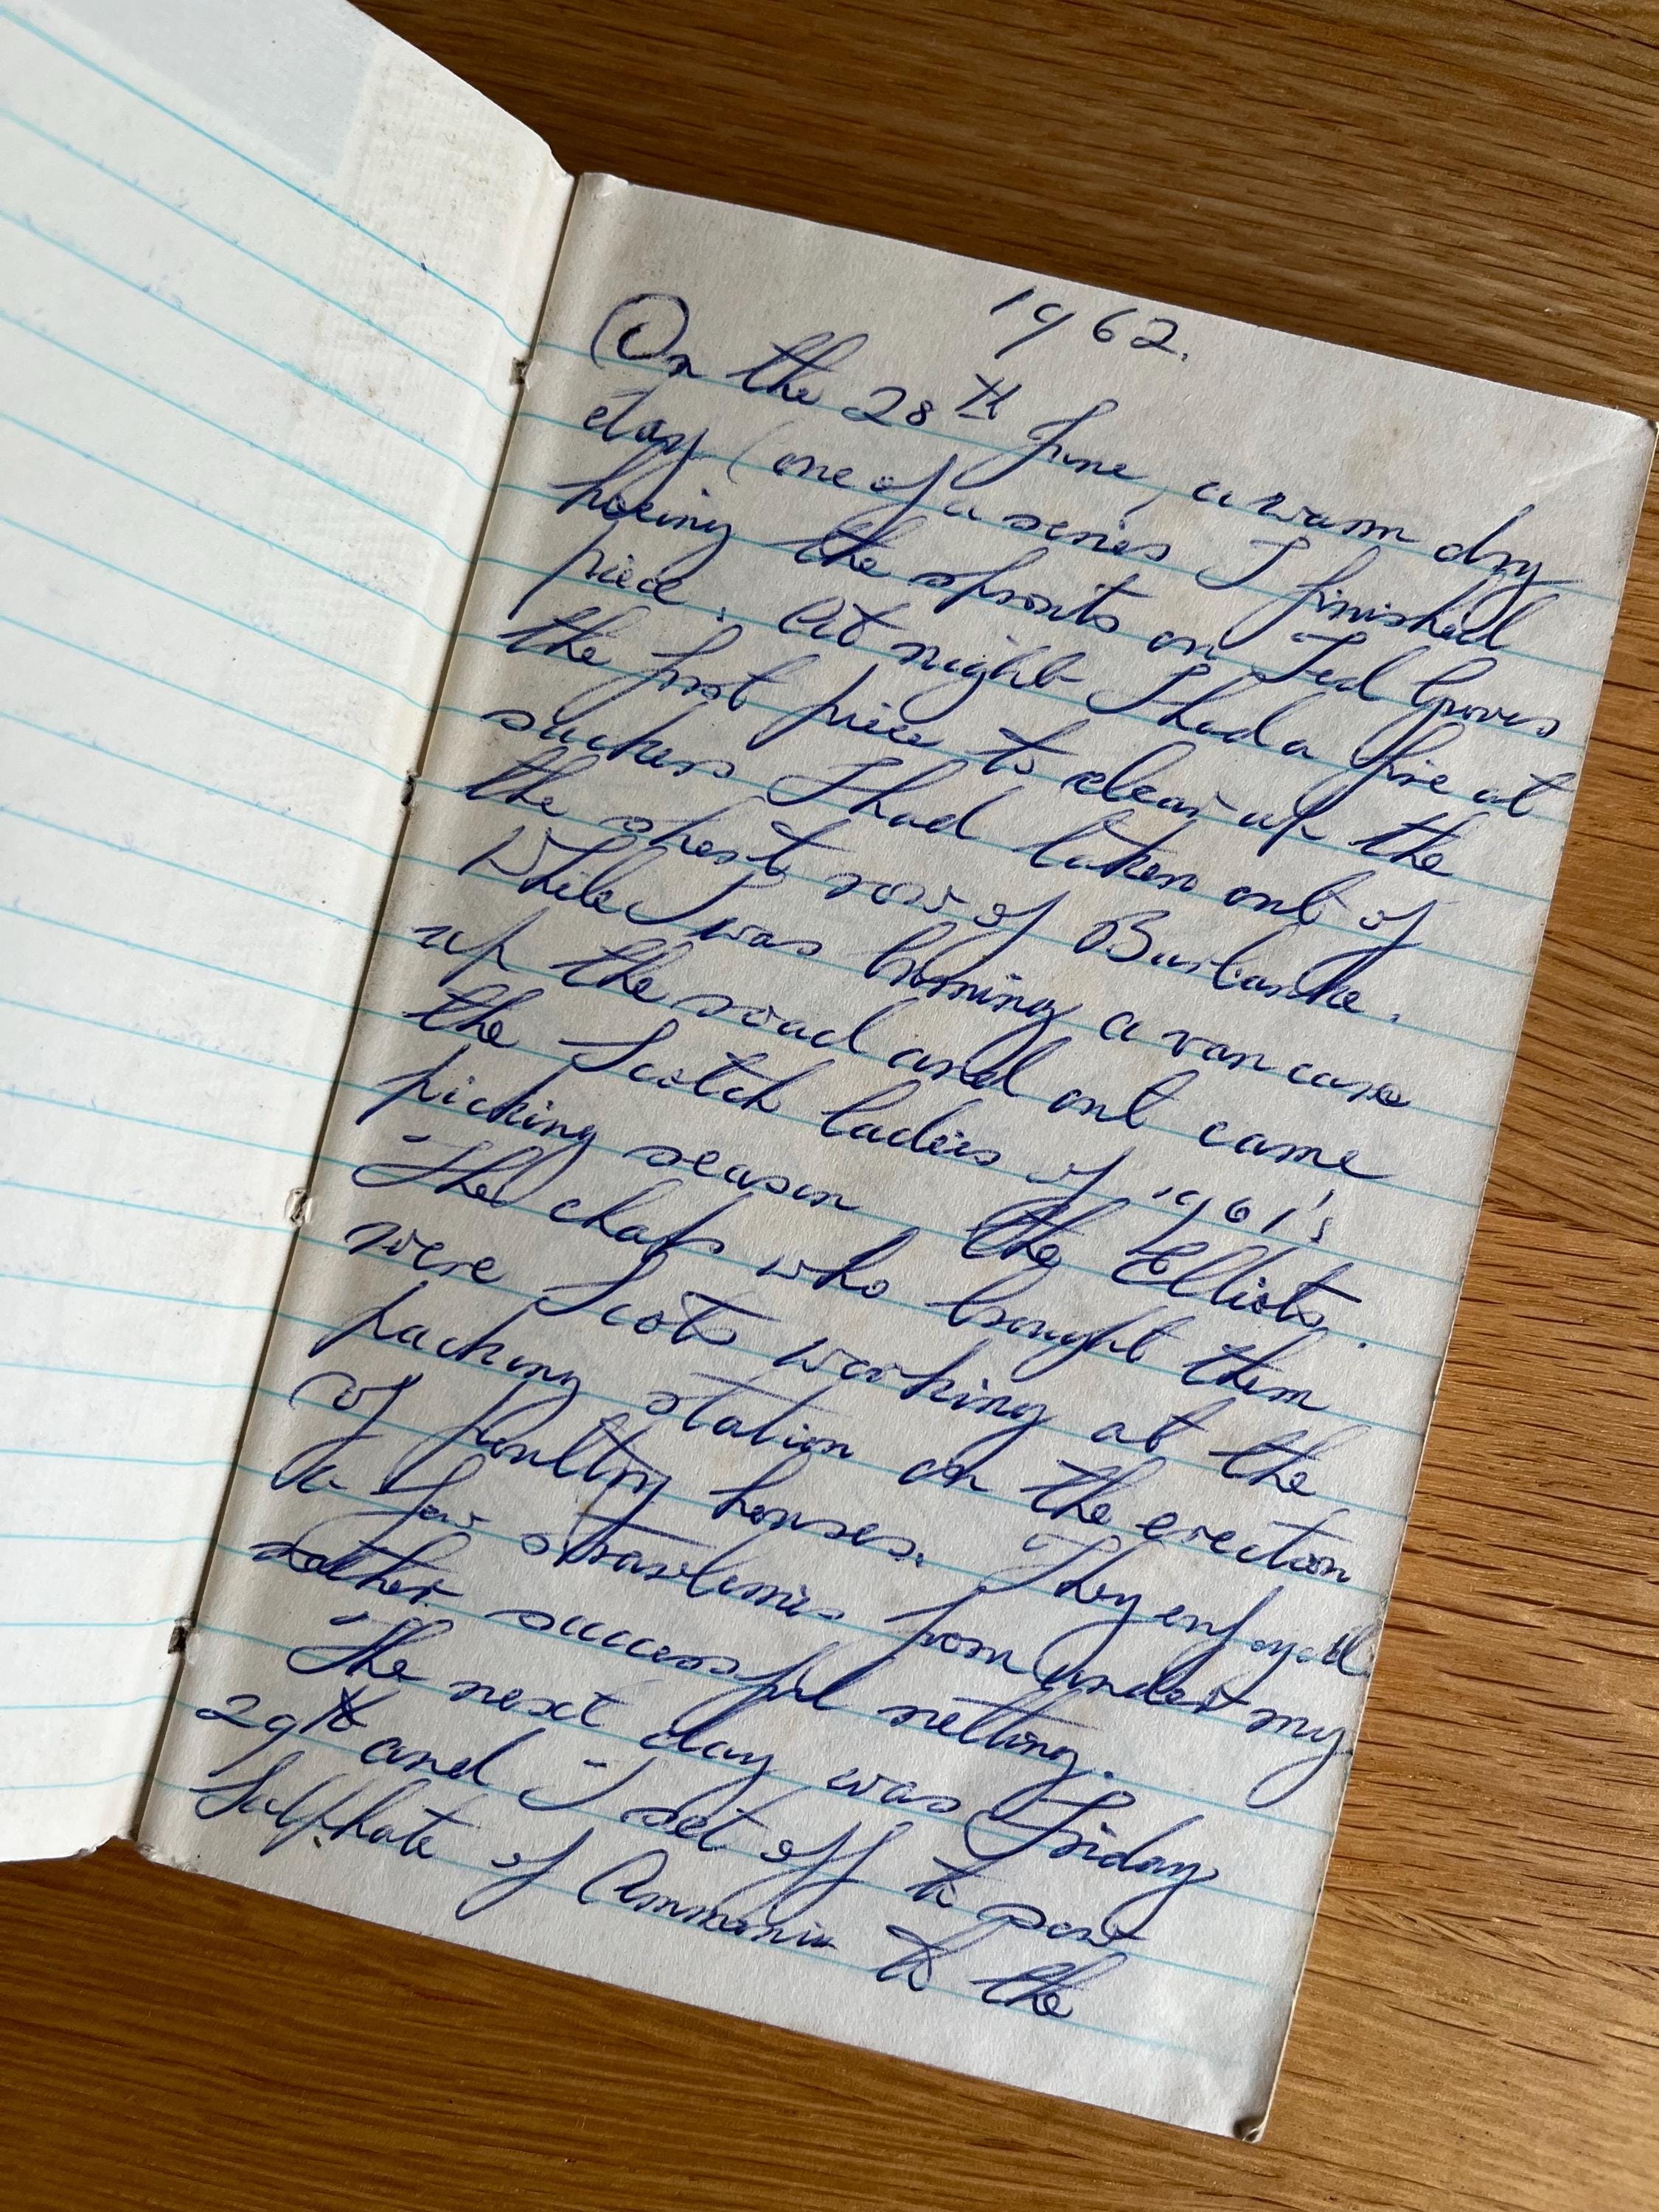 1962.
On the 28th June, a warm dry
day (one of a series I finished
hoeing the sprouts on Ted Groves
piece. At night I had a fire at
the first piece to clear up the
suckers I had taken out of
the short row of Burbanks.
While I was burning a van came
up the road and out came
the Scotch ladies of 1961's
picking season, the Elliots.
The chaps who bought them
were Scots working at the
packing station on the erection
of poultry houses. They enjoyed
a few strawberries from under my
rather successful netting.
The next day was Friday
29th and I set off to sow
Sulphate of Ammonia to the